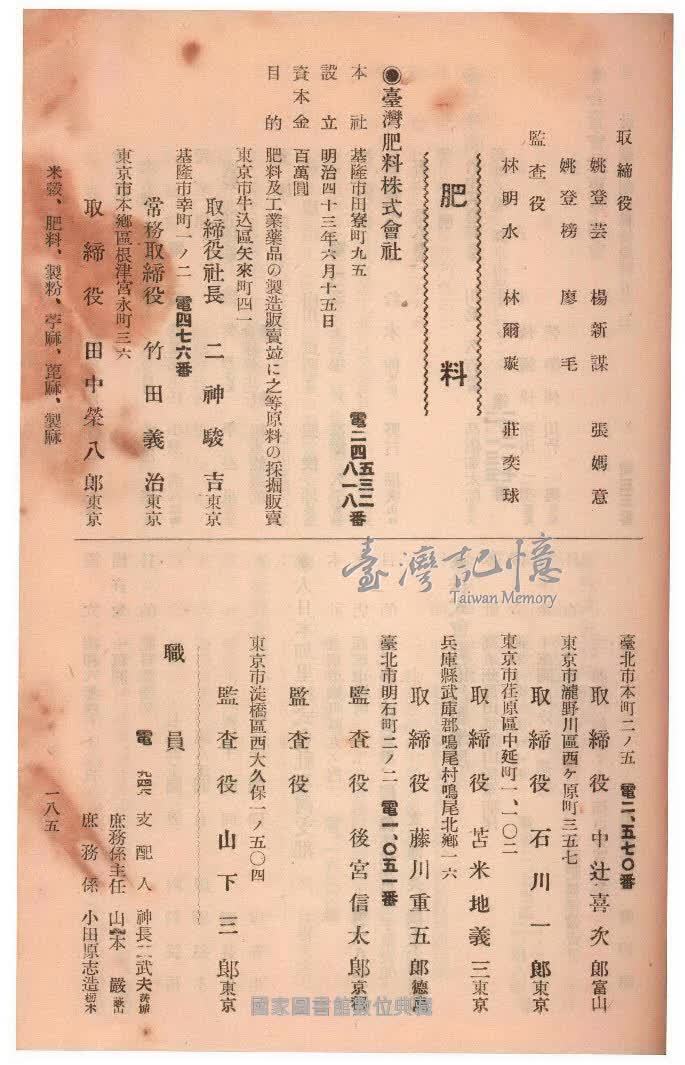 取締役
姚登芸　楊新謀　張媽意
姚登榜　廖毛
監査役
林明水　林爾璇　莊奕球
肥料
◉臺灣肥料株式會社
本社　基隆市田寮町九五　電二四五三二番
八一八
設立　明治四十三年六月十五日
資本金　百萬圓
目的　肥料及工業藥品の製造販賣竝に之等原料の採掘販賣
東京市牛込區矢來町四一
取締役社長　二神駿吉　東京
基隆市幸町一ノ二　電四七六番
常務取締役　竹田義治　東京
東京市本鄉區根津宮永町三六
取締役　田中榮八郎　東京
米穀、肥料、製粉、苧麻、蓖麻、製麻
臺北市本町二ノ五　電二、五七〇番
取締役　中辻喜次郎　富山
東京市瀧野川區西ケ原町三五七
取締役　石川一郎　東京
東京市荏原區中延町一、一〇二
取締役　苫米地義三　東京
兵庫縣武庫郡鳴尾村鳴尾北鄉一六
取締役　藤川重五郎　德島
臺北市明石町二ノ二　電一、〇五一番
監査役　後宮信太郎　京都
監査役
東京市淀橋區西大久保一ノ五〇四
監査役　山下三郎　東京
職員
電　支配人　神長二武夫　茨城
庶務係主任　山本嚴
庶務係　小田原志造　栃木
一八五
臺灣記憶
Taiwan Memory
國家圖書館數位典藏